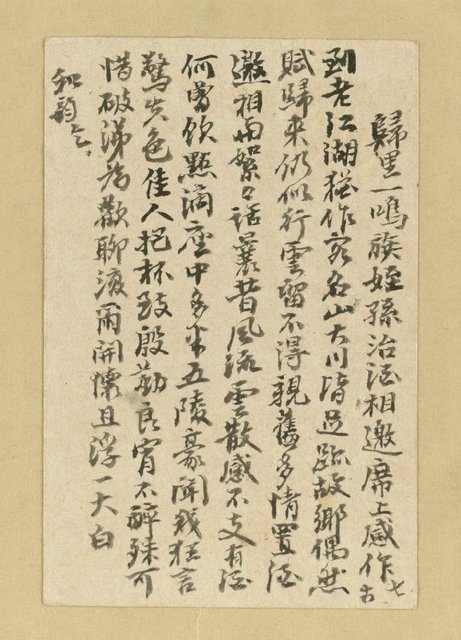 歸里一鳴族姪孫治酒相邀席上感作 七古
到老江湖猶作客名山大川借足跡故鄉偶然
賦歸來仍似行雲留不得親舊多情置酒
邀相與絮々話曩昔風流雲散感不支有酒
何曾飲點滴座中多半五陵豪聞我狂言
驚失色佳人把杯致殷勤良宵不醉殊可
惜破涕為歡聊復爾開懷且浮一大白
和韵乞